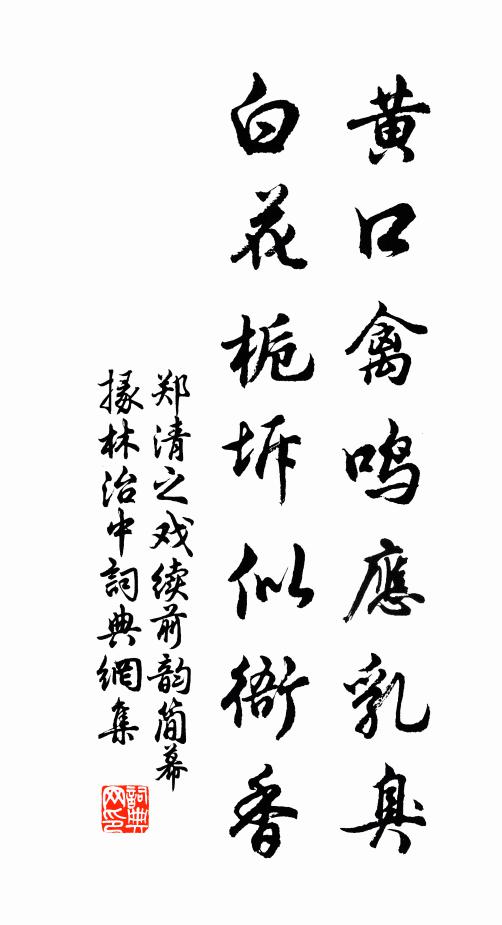 黄口禽鸣應乳臭
白花栀坼似衙香
郑清之戏续前韵简幕
掾林治中詞典網集